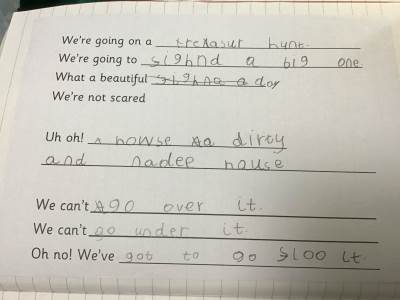 We're going on a treasur hunt.
We're going to sighnd a big one.
What a beautiful sighna a day
We're not scared
Uh oh! A howse a dirty
and nadee house
We can't go over it.
We can't go under it.
Oh no! We've got to go sloo it